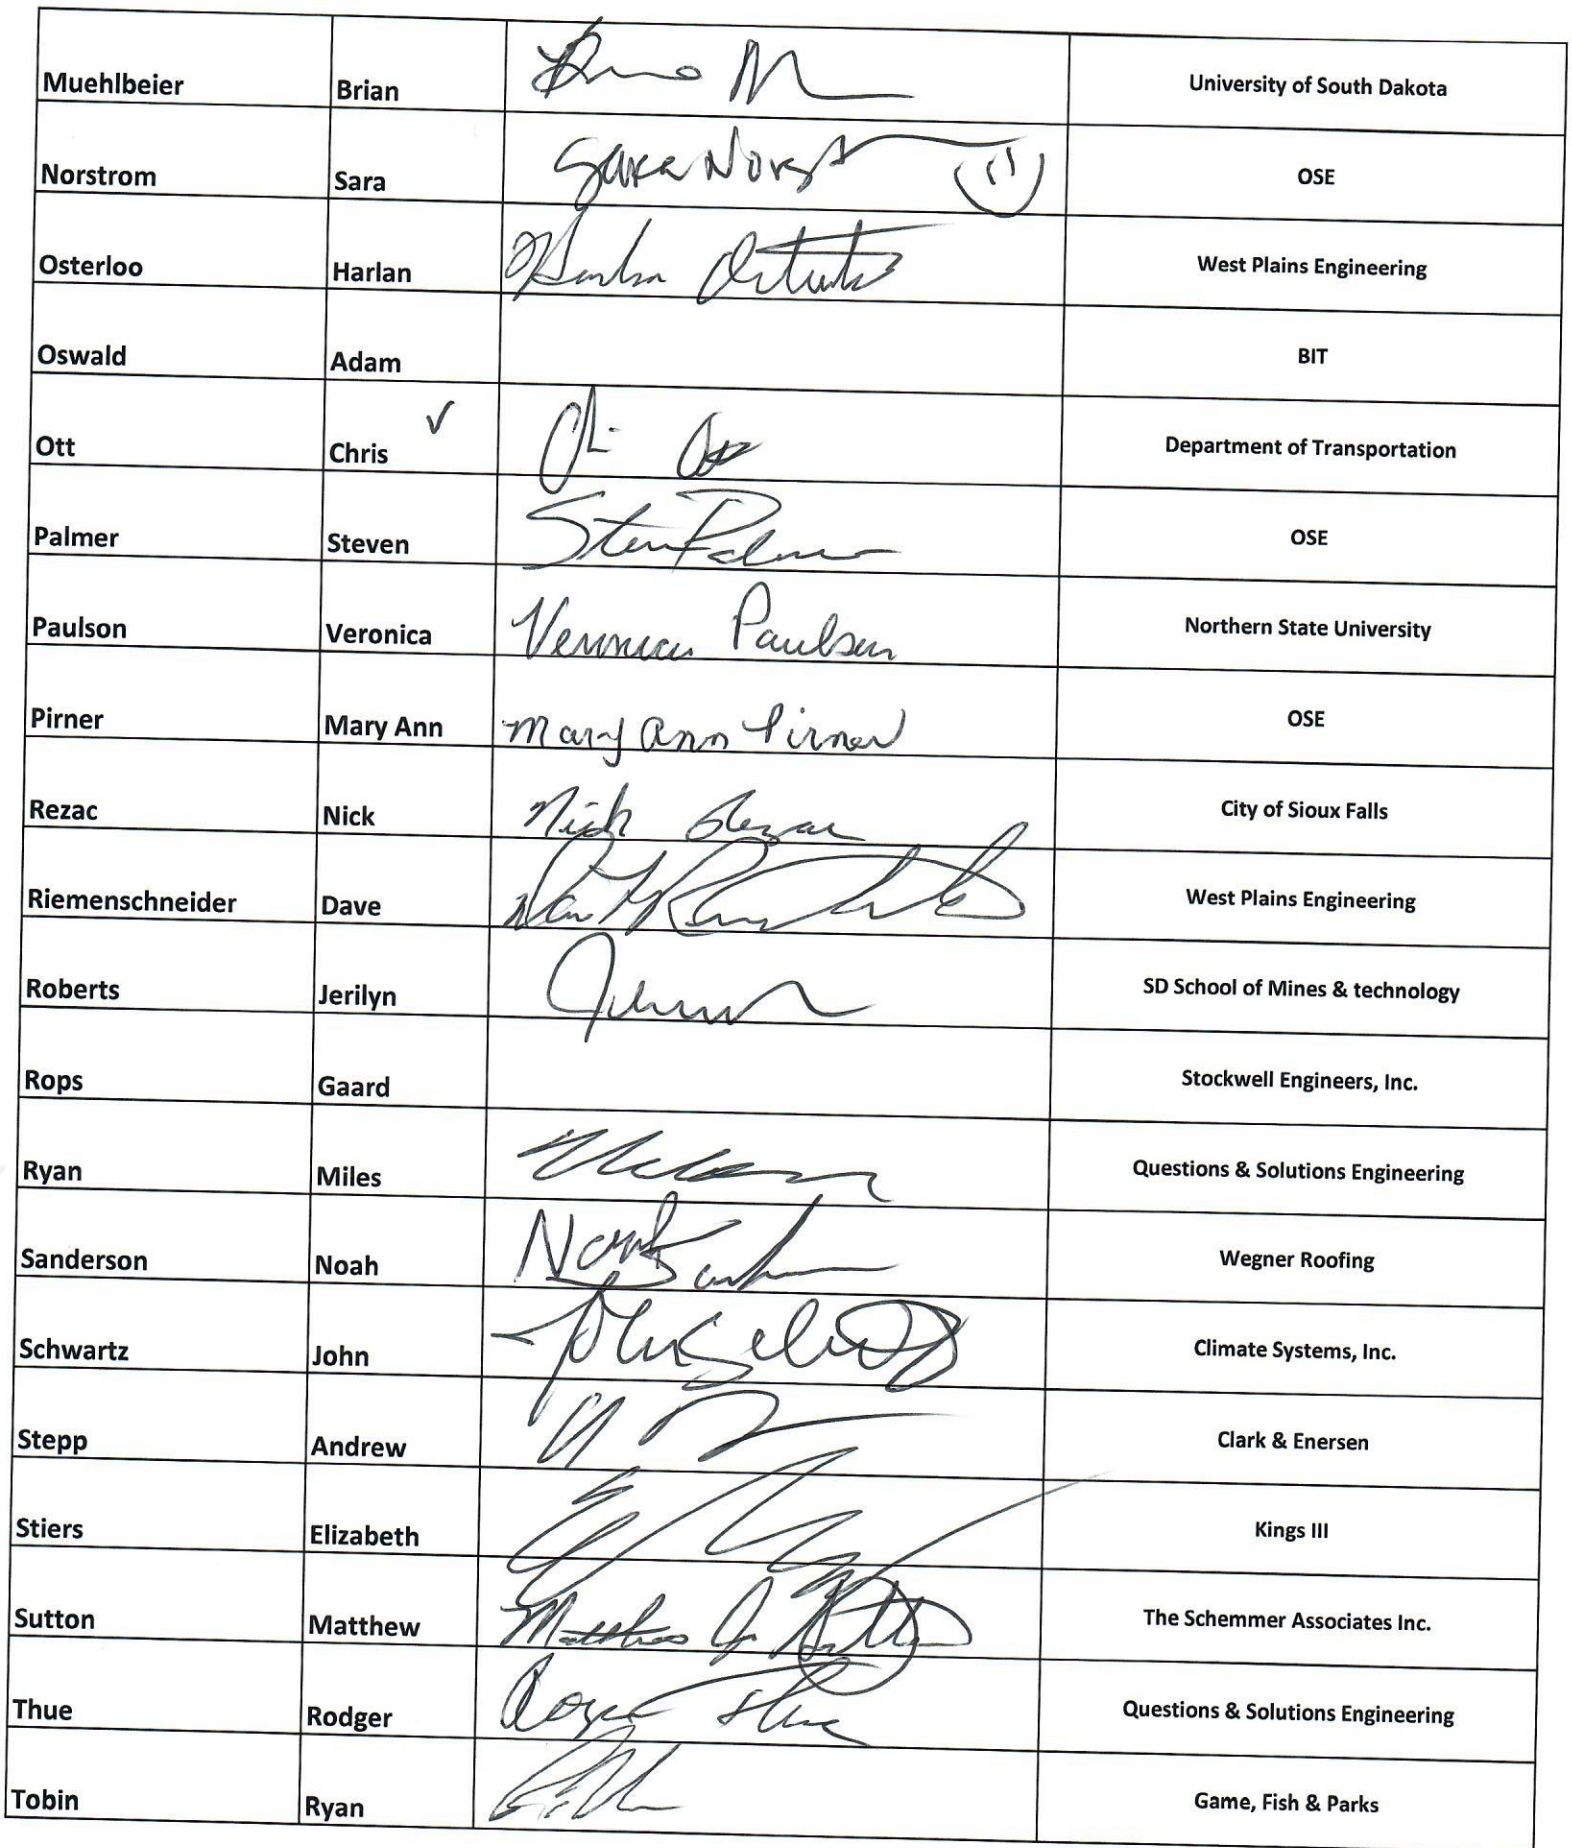 Muehlbeier Brian University of South Dakota
Norstrom Sara Sara Norst OSE
Osterloo Harlan Harlan West Plains Engineering
Oswald Adam BIT
Ott Chris ✓ Department of Transportation
Palmer Steven Steven Palmer OSE
Paulson Veronica Veronica Paulson Northern State University
Pirner Mary Ann Mary Ann Pirner OSE
Rezac Nick Nick Rezac City of Sioux Falls
Riemenschneider Dave West Plains Engineering
Roberts Jerilyn SD School of Mines & technology
Rops Gaard Stockwell Engineers, Inc.
Ryan Miles Questions & Solutions Engineering
Sanderson Noah Noah Wegner Roofing
Schwartz John John Climate Systems, Inc.
Stepp Andrew Clark & Enersen
Stiers Elizabeth Kings III
Sutton Matthew Matthew J. Sutton The Schemmer Associates Inc.
Thue Rodger Rodger Thue Questions & Solutions Engineering
Tobin Ryan Game, Fish & Parks